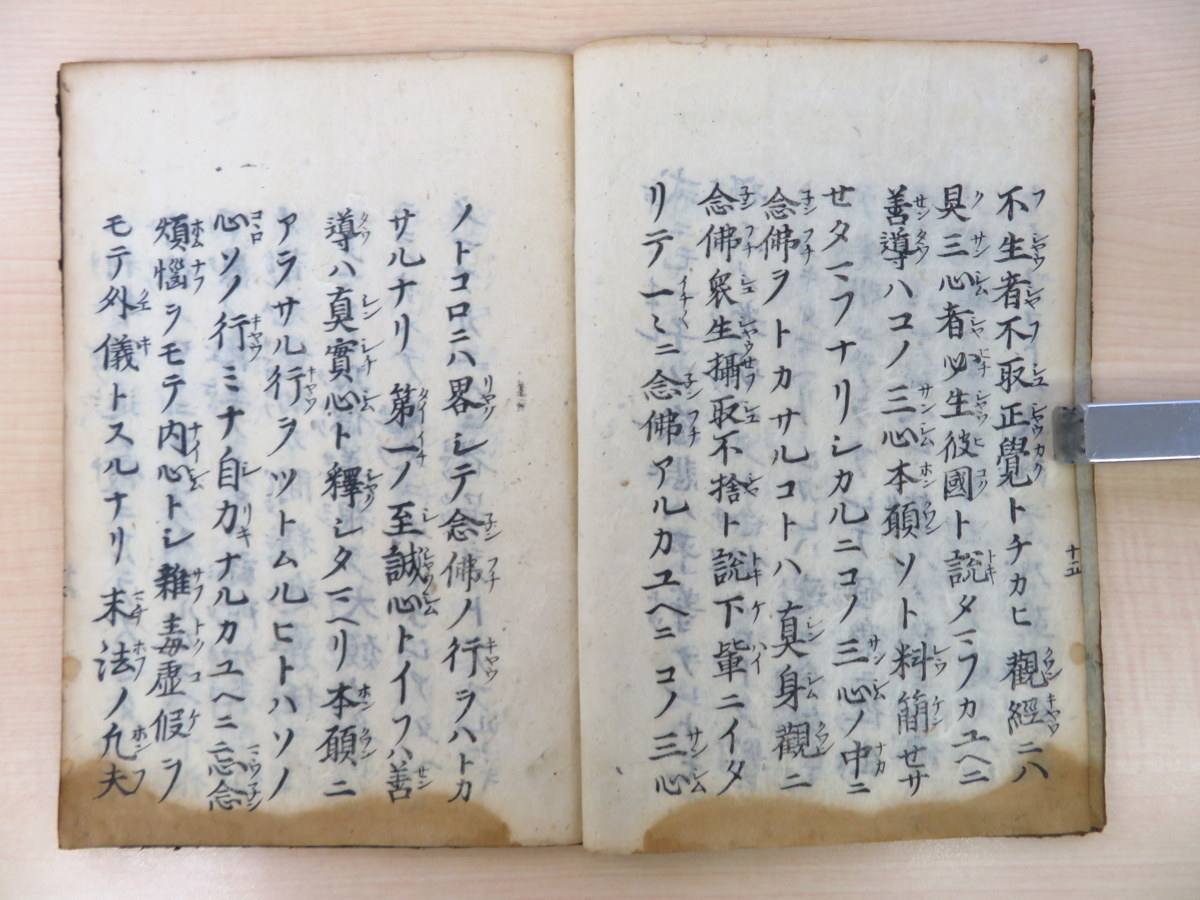 不生者不取正覺トチカヒ 觀經ニハ
具三心者必生彼國ト説タマフカユヘニ
善導ハコノ三心本願ソト料簡せサ
せタマフナリシカルニコノ三心ノ中ニ
念佛ヲトカサルコトハ 真身觀ニ
念佛衆生攝取不捨ト説下輩ニイタ
リテ一〻ニ念佛アルカユヘニコノ三心
ノトコロニハ畧シテ念佛ノ行ヲハトカ
サルナリ 第一ノ至誠心トイフハ善
導ハ真實心ト釋シタマヘリ本願ニ
アラサル行ヲツトムルヒトハソノ
心ソノ行ミナ自力ナルカユヘニ忘念
煩惱ヲモテ内心トシ雜毒虚假ヲ
モテ外儀トスルナリ 末法ノ凢夫